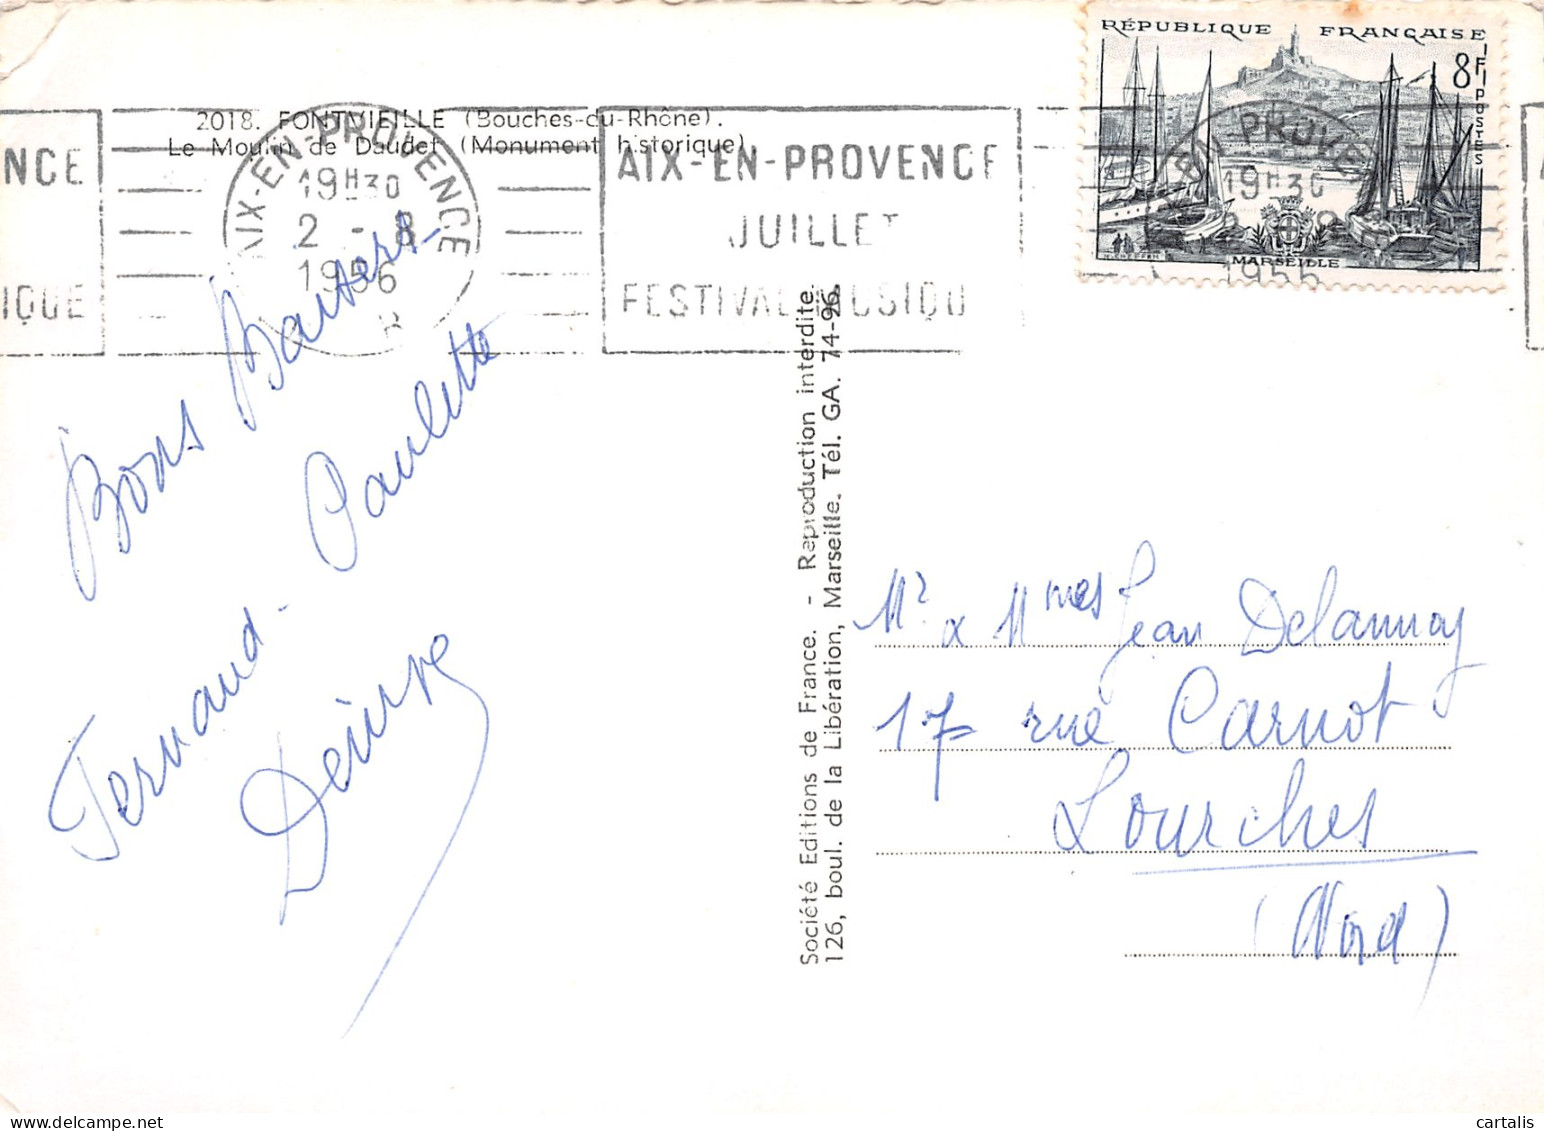 RÉPUBLIQUE FRANÇAISE
8F
POSTES
MARSEILLE
2018. FONTVIEILLE (Bouches-du-Rhône).
Le Moulin de Daudet (Monument historique)
AIX-EN-PROVENCE
19H30
2 - 8
1956
AIX-EN-PROVENCE
JUILLET
FESTIVAL MUSIQU
NCE
IQUE
EN-PROVE
19H30
1956
Bons Baisers
Paulette
Fernand -
Société Editions de France. - Reproduction interdite.
126, boul. de la Libération, Marseille. Tél. GA. 74-96.
Mr & Mmes Jean Delannoy
17 rue Carnot
Lourches
(Nord)
cartalis